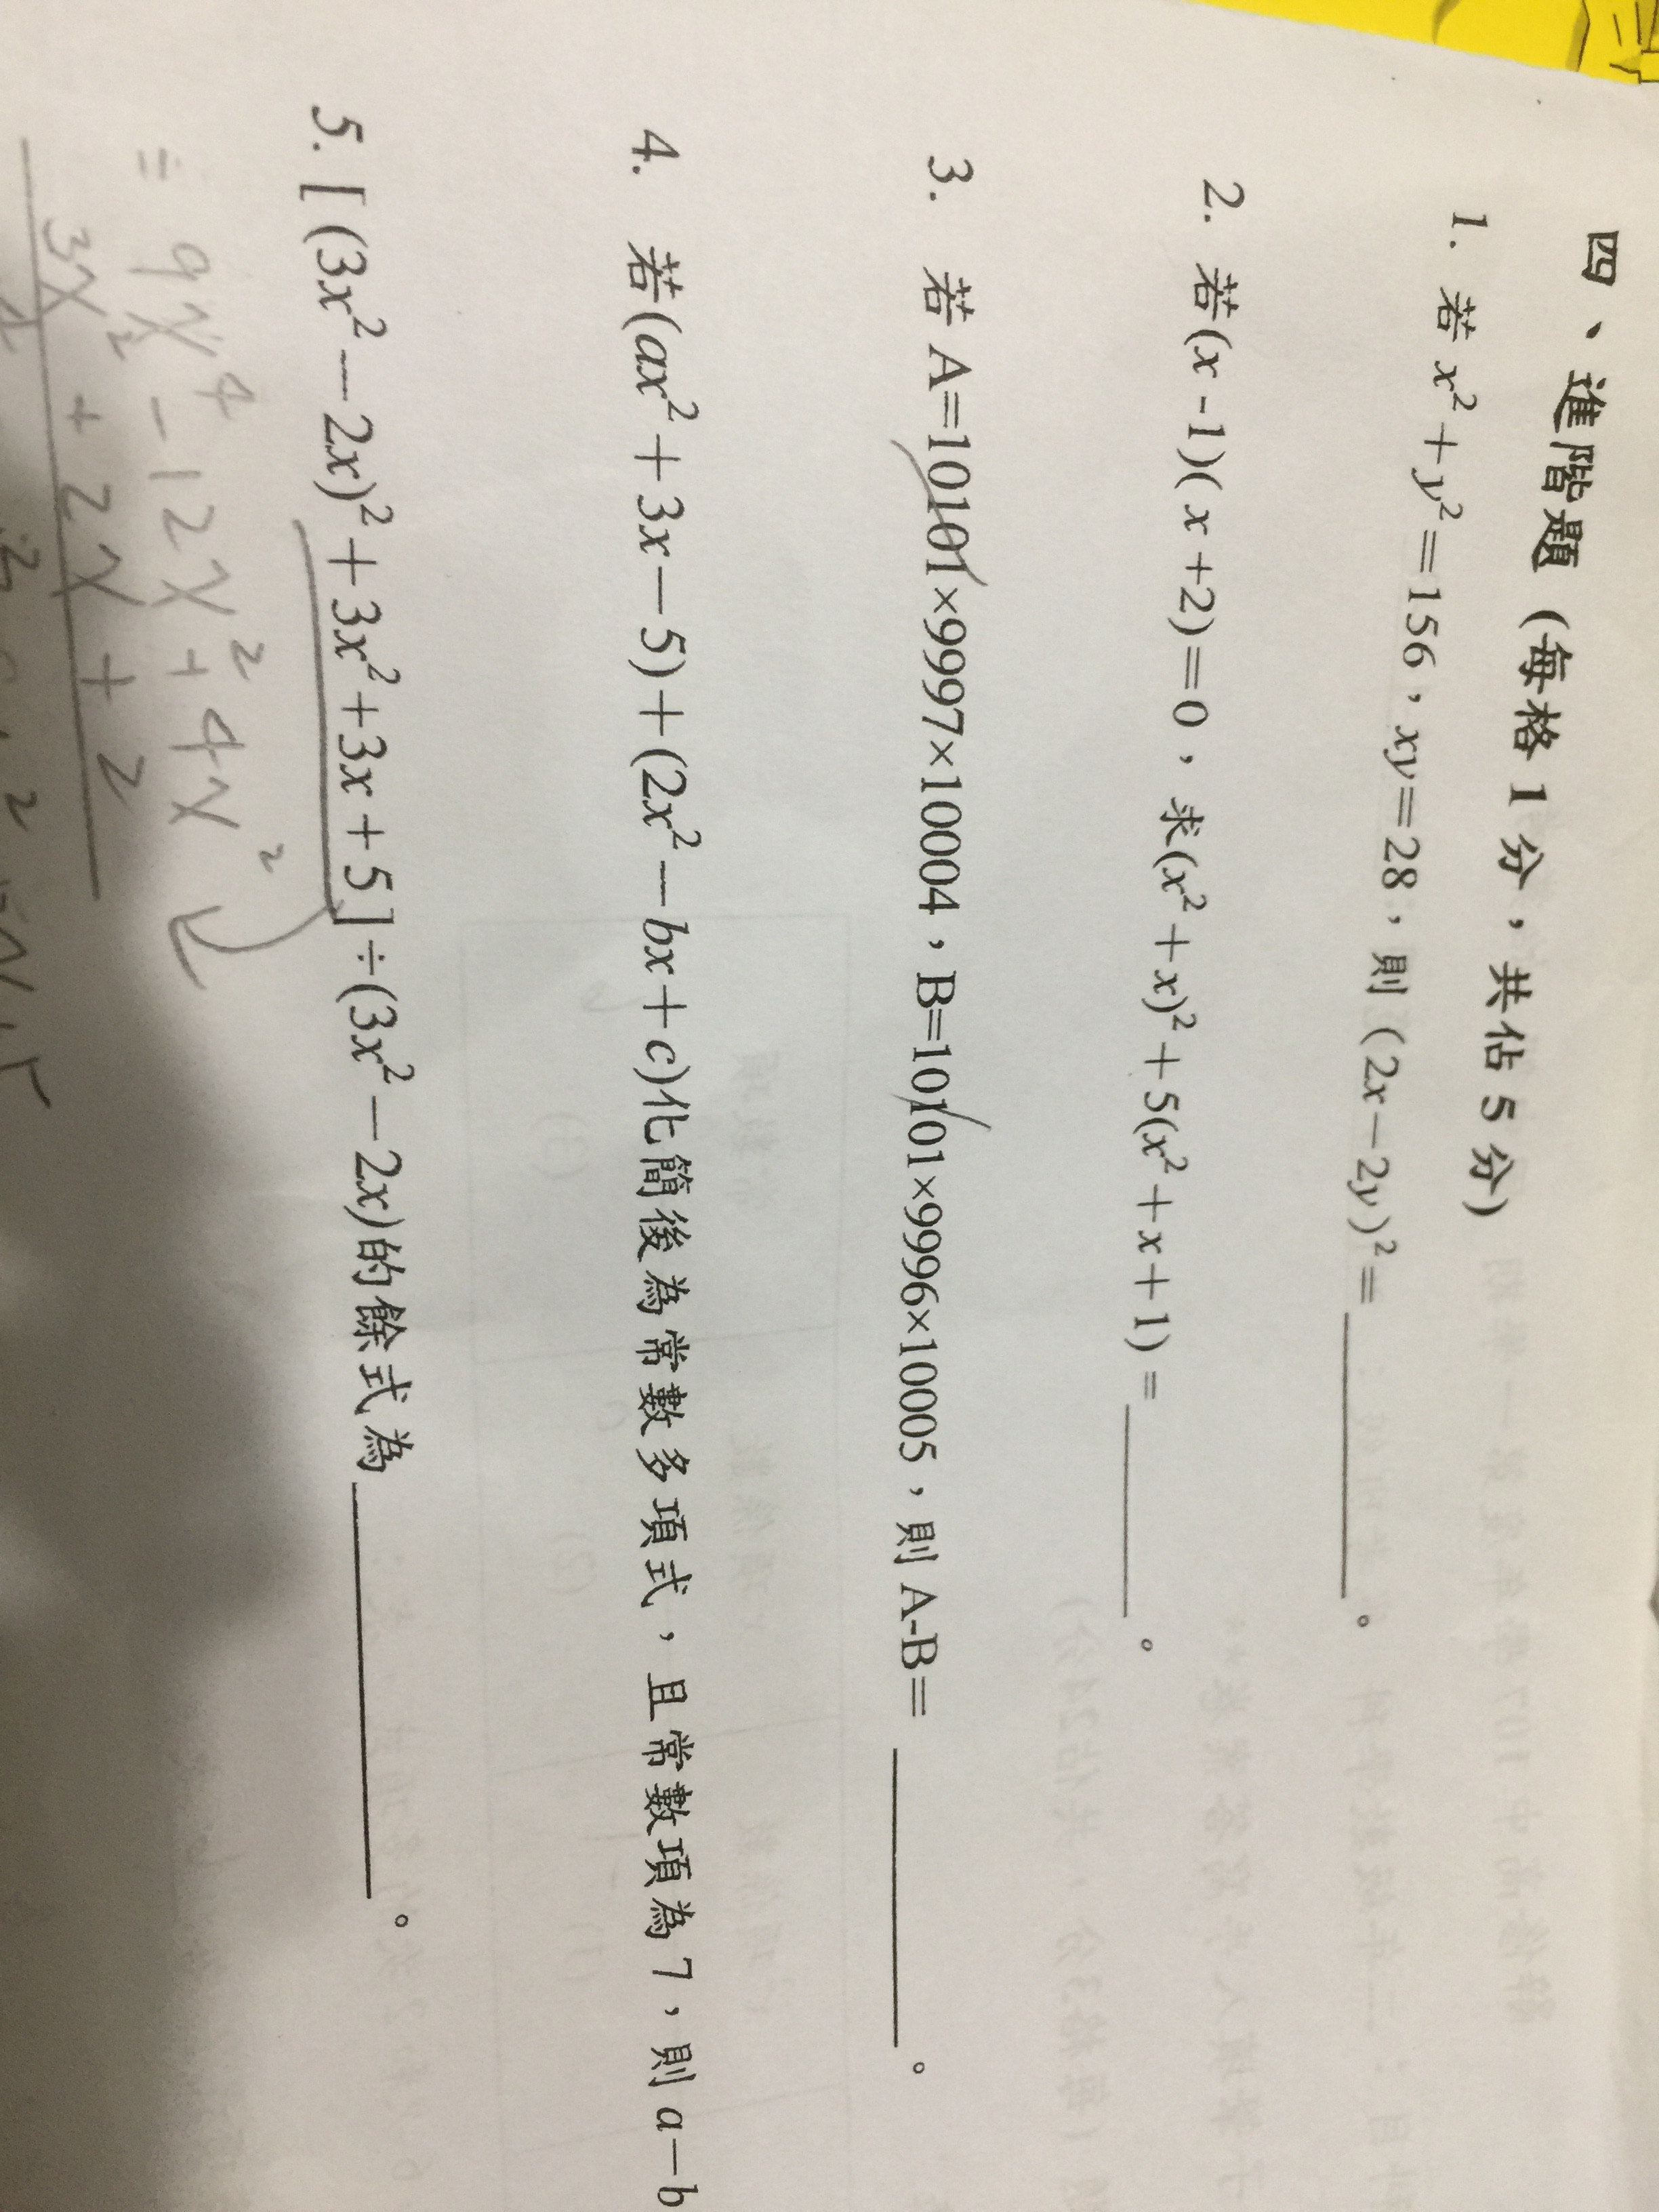 四、進階題（每格 1 分，共佔 5 分）
1. 若 x²+y²=156，xy=28，則（2x－2y）²=＿＿＿＿。
2. 若(x -1)( x +2)=0，求(x²+x)²+5(x²+x+1) =＿＿＿＿。
3. 若 A=10101×9997×10004，B=10101×9996×10005，則 A-B=＿＿＿＿。
4. 若(ax²+3x－5)+(2x²－bx+c)化簡後為常數多項式，且常數項為 7，則 a－b
5. [ (3x²－2x)²+3x²+3x+5]÷(3x²－2x)的餘式為＿＿＿＿。
= 9x⁴ - 12x² + 4x²
3x² + 2x + 2